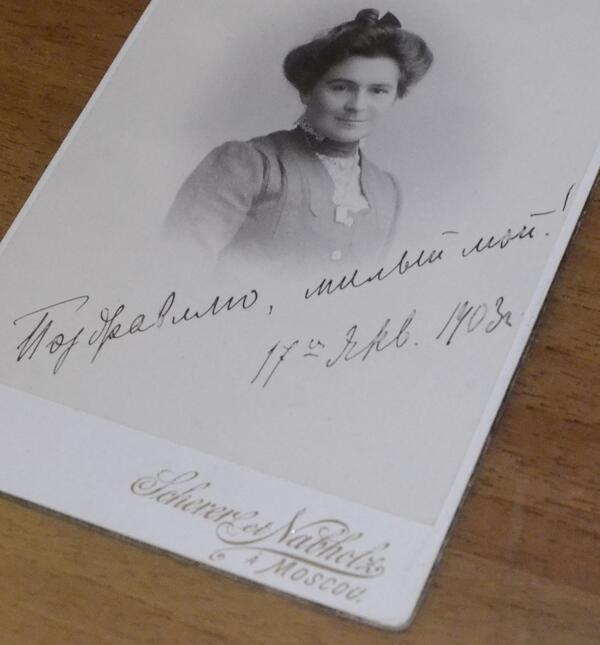 Поздравляю, милый мой!
17го Янв. 1903г.
Scherer et Nabholz
À MOSCOU.